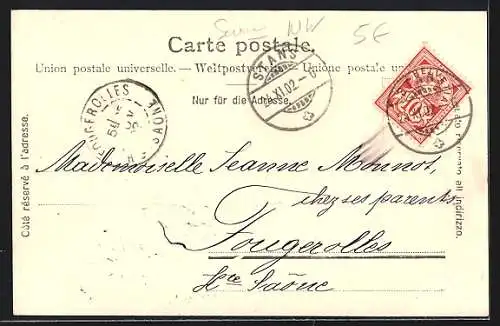 NW 5€
Carte postale.
Union postale universelle. — Weltpostverein. — Unione postale
Nur für die Adresse.
STANS
24.XI.02
FOUGEROLLES
Hte SAONE
HELVETIA
10
Côté réservé à l'adresse.
Mademoiselle Jeanne Monnot,
chez ses parents
Fougerolles
Hte Saône
all' indirizzo.